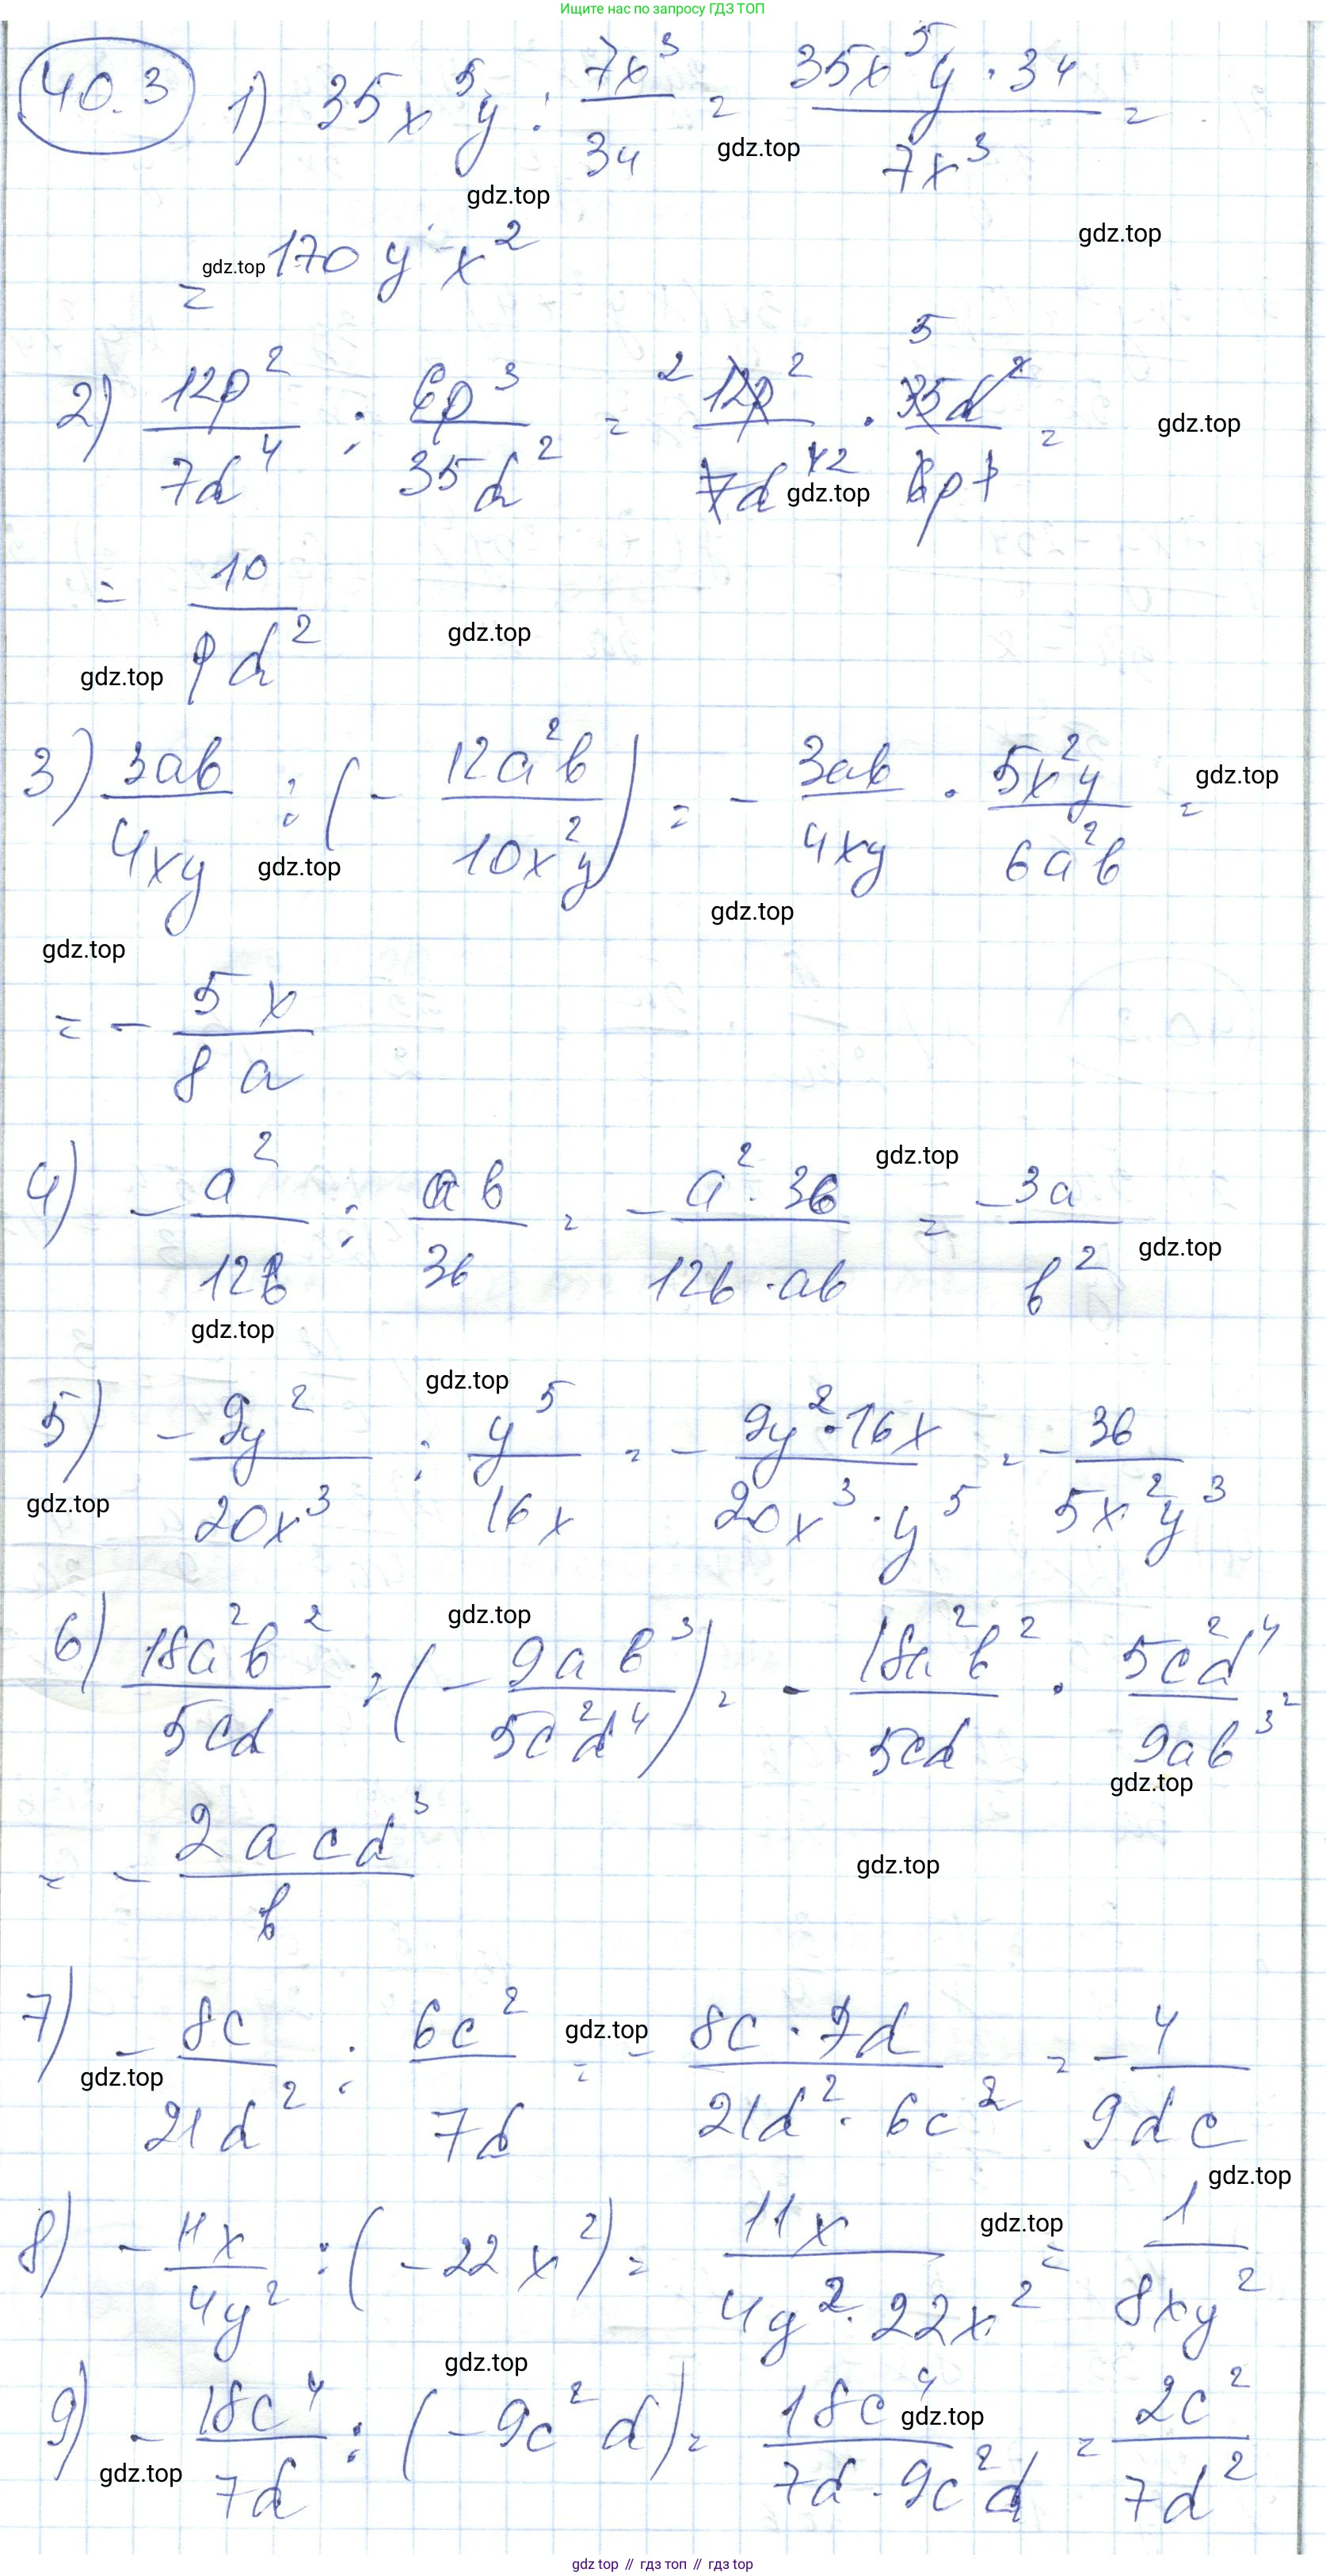 Ищите нас по запросу ГДЗ ТОП
40.3 1) 35x^5y : 7x^3/34 = 35x^5y · 34/7x^3 =
gdz.top
gdz.top
gdz.top
= 170 y · x^2
gdz.top
2) 12p^2/7d^4 : 6p^3/35d^2 = 2 12p^2/7d^4 2 · 5 35d^2/6p 1 =
gdz.top
gdz.top
= 10/pd^2
gdz.top
gdz.top
3) 3ab/4xy : (- 12a^2b/10x^2y) = - 3ab/4xy · 5x^2y/6a^2b =
gdz.top
gdz.top
gdz.top
gdz.top
= - 5x/8a
4) - a^2/12b : ab/36 = - a^2 · 36/12b · ab = - 3a/b^2
gdz.top
gdz.top
gdz.top
5) - 9y^2/20x^3 : y^5/16x = - 9y^2 · 16x/20x^3 · y^5 = - 36/5x^2y^3
gdz.top
gdz.top
6) 18a^2b^2/5cd : (- 9ab^3/5c^2d^4) = - 18a^2b^2/5cd · 5c^2d^4/9ab^3 =
gdz.top
gdz.top
= - 2acd^3/b
gdz.top
7) - 8c/21d^2 : 6c^2/7d = - 8c · 7d/21d^2 · 6c^2 = - 4/9dc
gdz.top
gdz.top
gdz.top
8) - 11x/4y^2 : (-22x^2) = 11x/4y^2 · 22x^2 = 1/8xy^2
gdz.top
gdz.top
9) - 18c^4/7d : (-9c^2d) = 18c^4/7d · 9c^2d = 2c^2/7d^2
gdz.top
gdz.top
gdz.top // гдз топ // гдз top